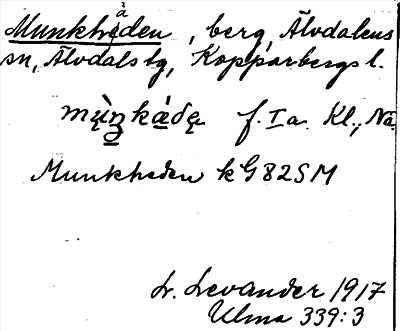 Munkheden, berg, Älvdalens
sn, Älvdals tg, Kopparbergs l.
f. Ia. Kl., Nä.
Munkheden kG82SM
L. Levander 1917
Ulma 339:3